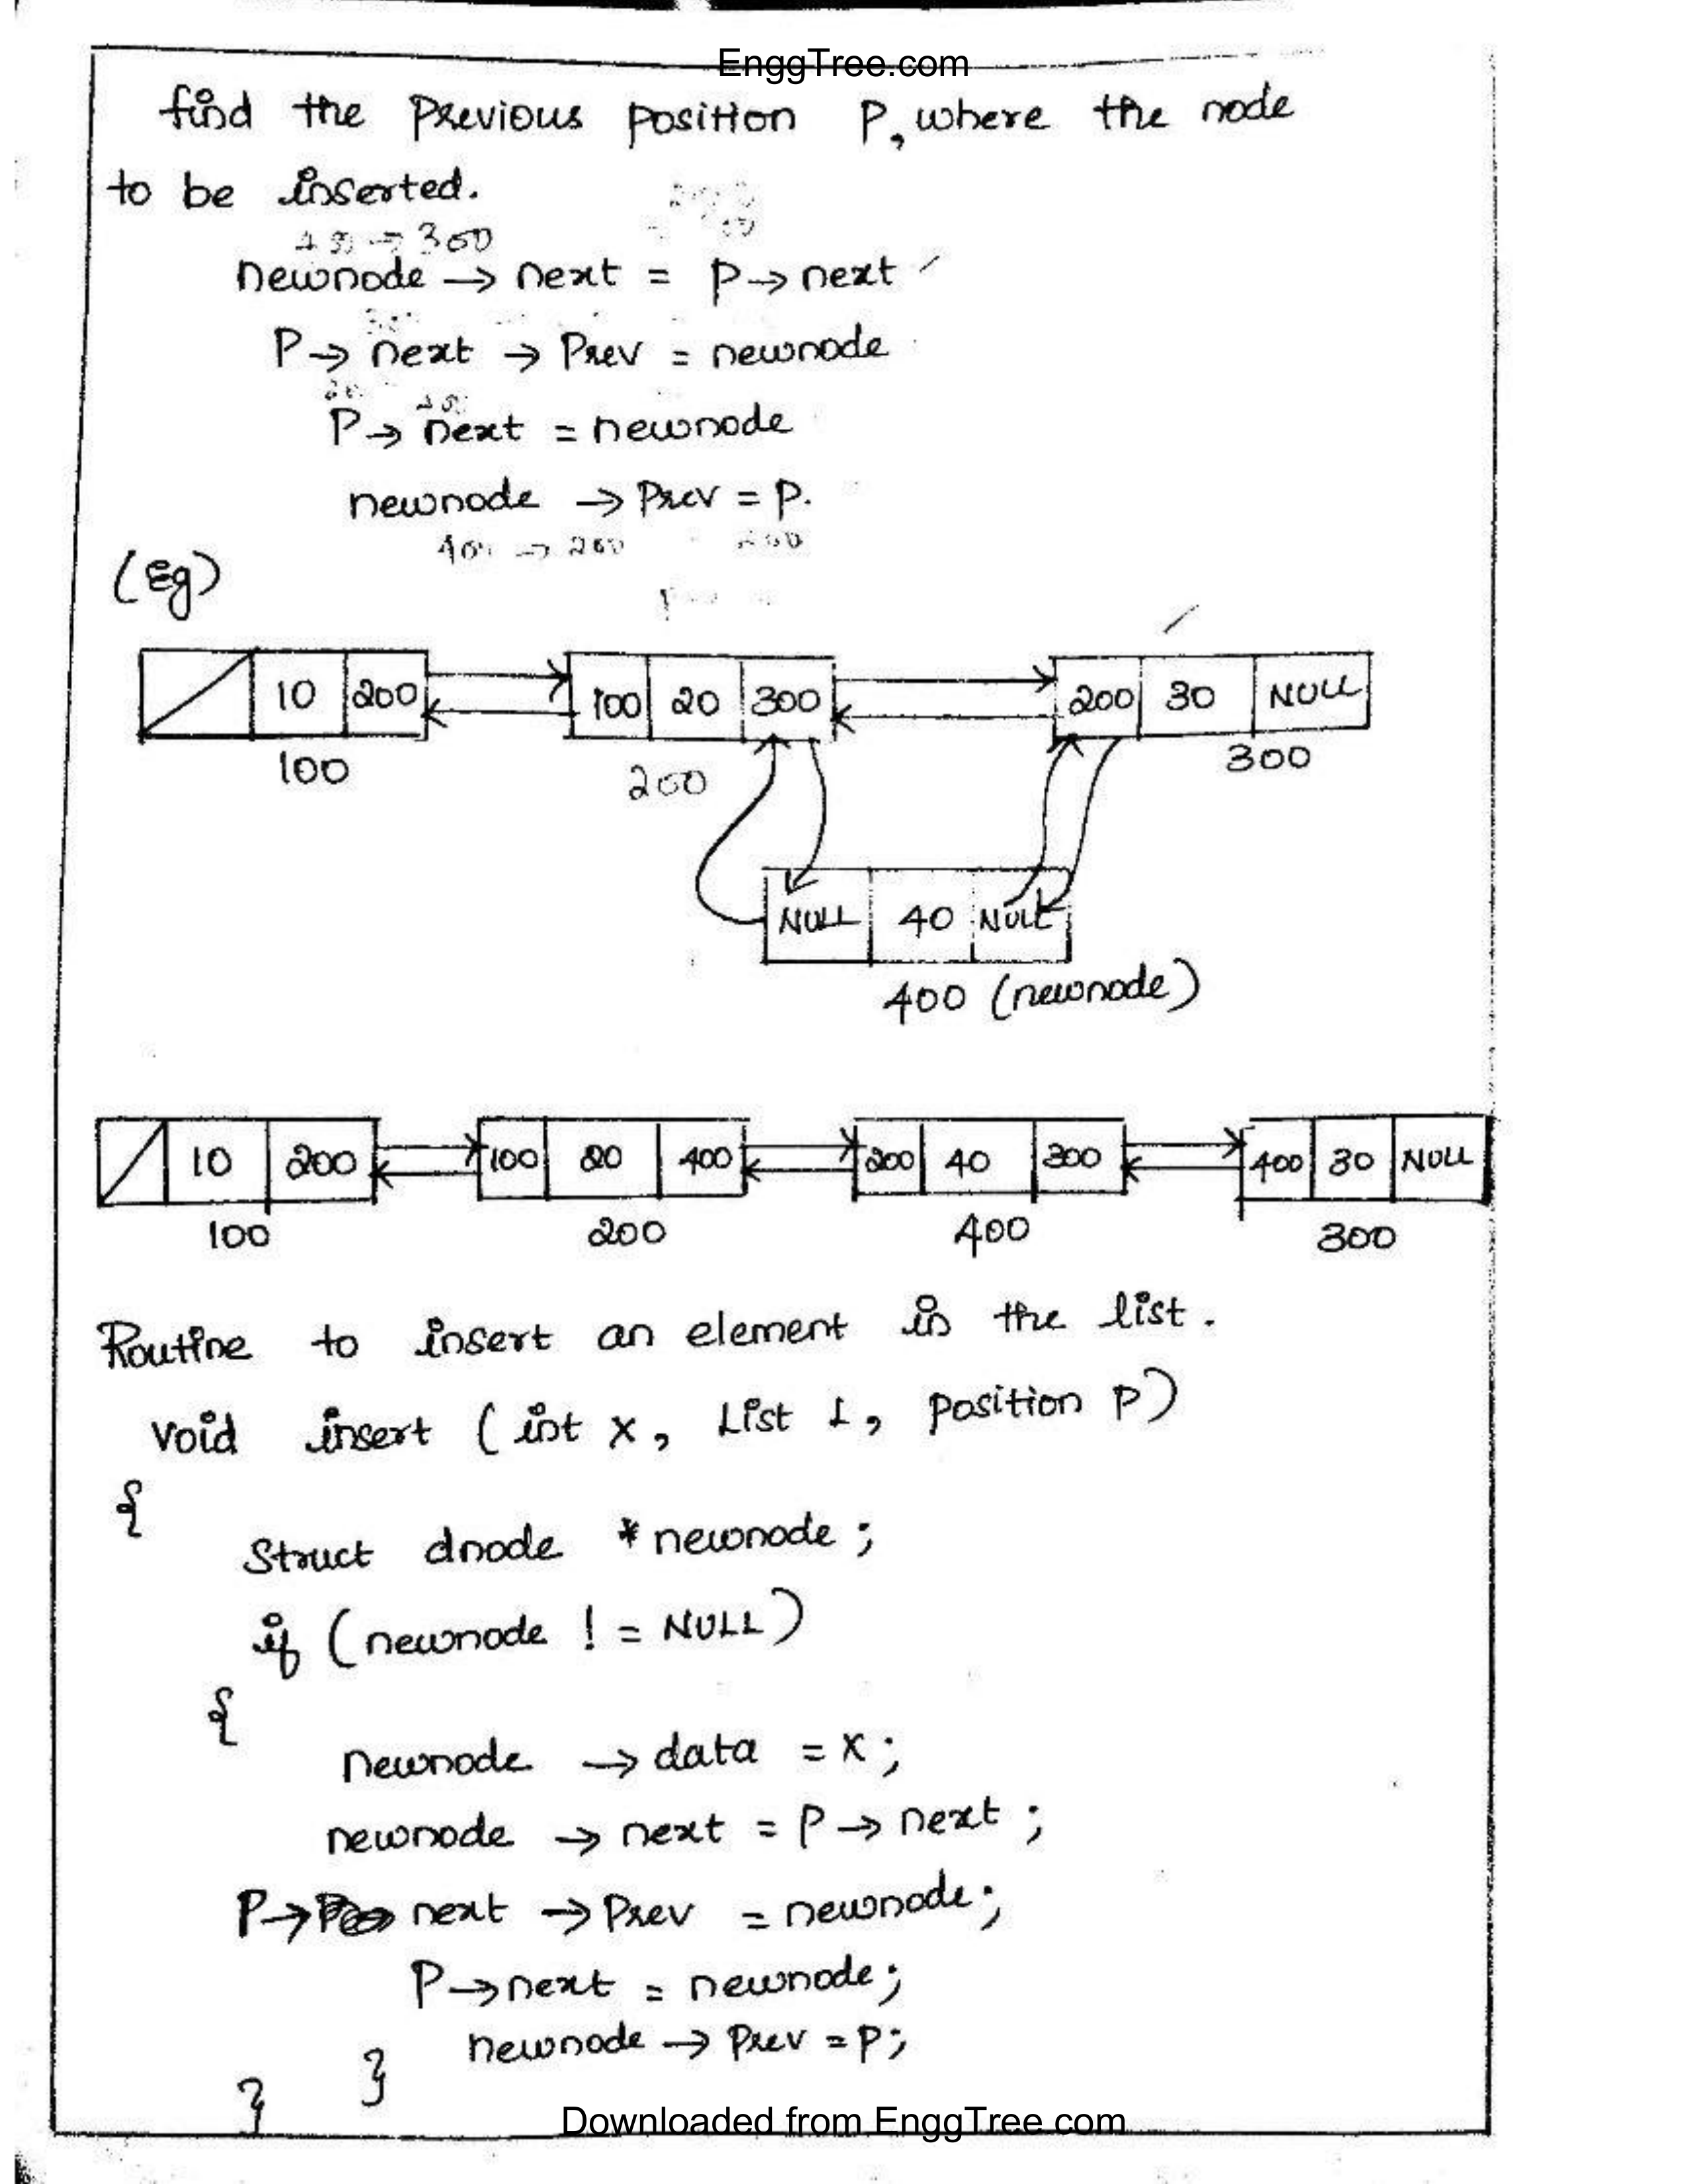 EnggTree.com
find the Previous position P, where the node
to be inserted.
300
newnode → next = P → next
P → next → Prev = newnode
P → next = newnode
newnode → Prev = P.
400 → 200 200
(Eg)
10 200 100 20 300 200 30 NULL
100 200 300
NULL 40 NULL
400 (newnode)
10 200 100 20 400 200 40 300 400 30 NULL
100 200 400 300
Routine to insert an element in the list.
Void insert ( int x, List L, position P)
{
Struct dnode * newnode ;
if (newnode ! = NULL)
{
newnode → data = x ;
newnode → next = P → next ;
P → next → Prev = newnode;
P → next = newnode;
newnode → Prev = P;
}
}
Downloaded from EnggTree.com